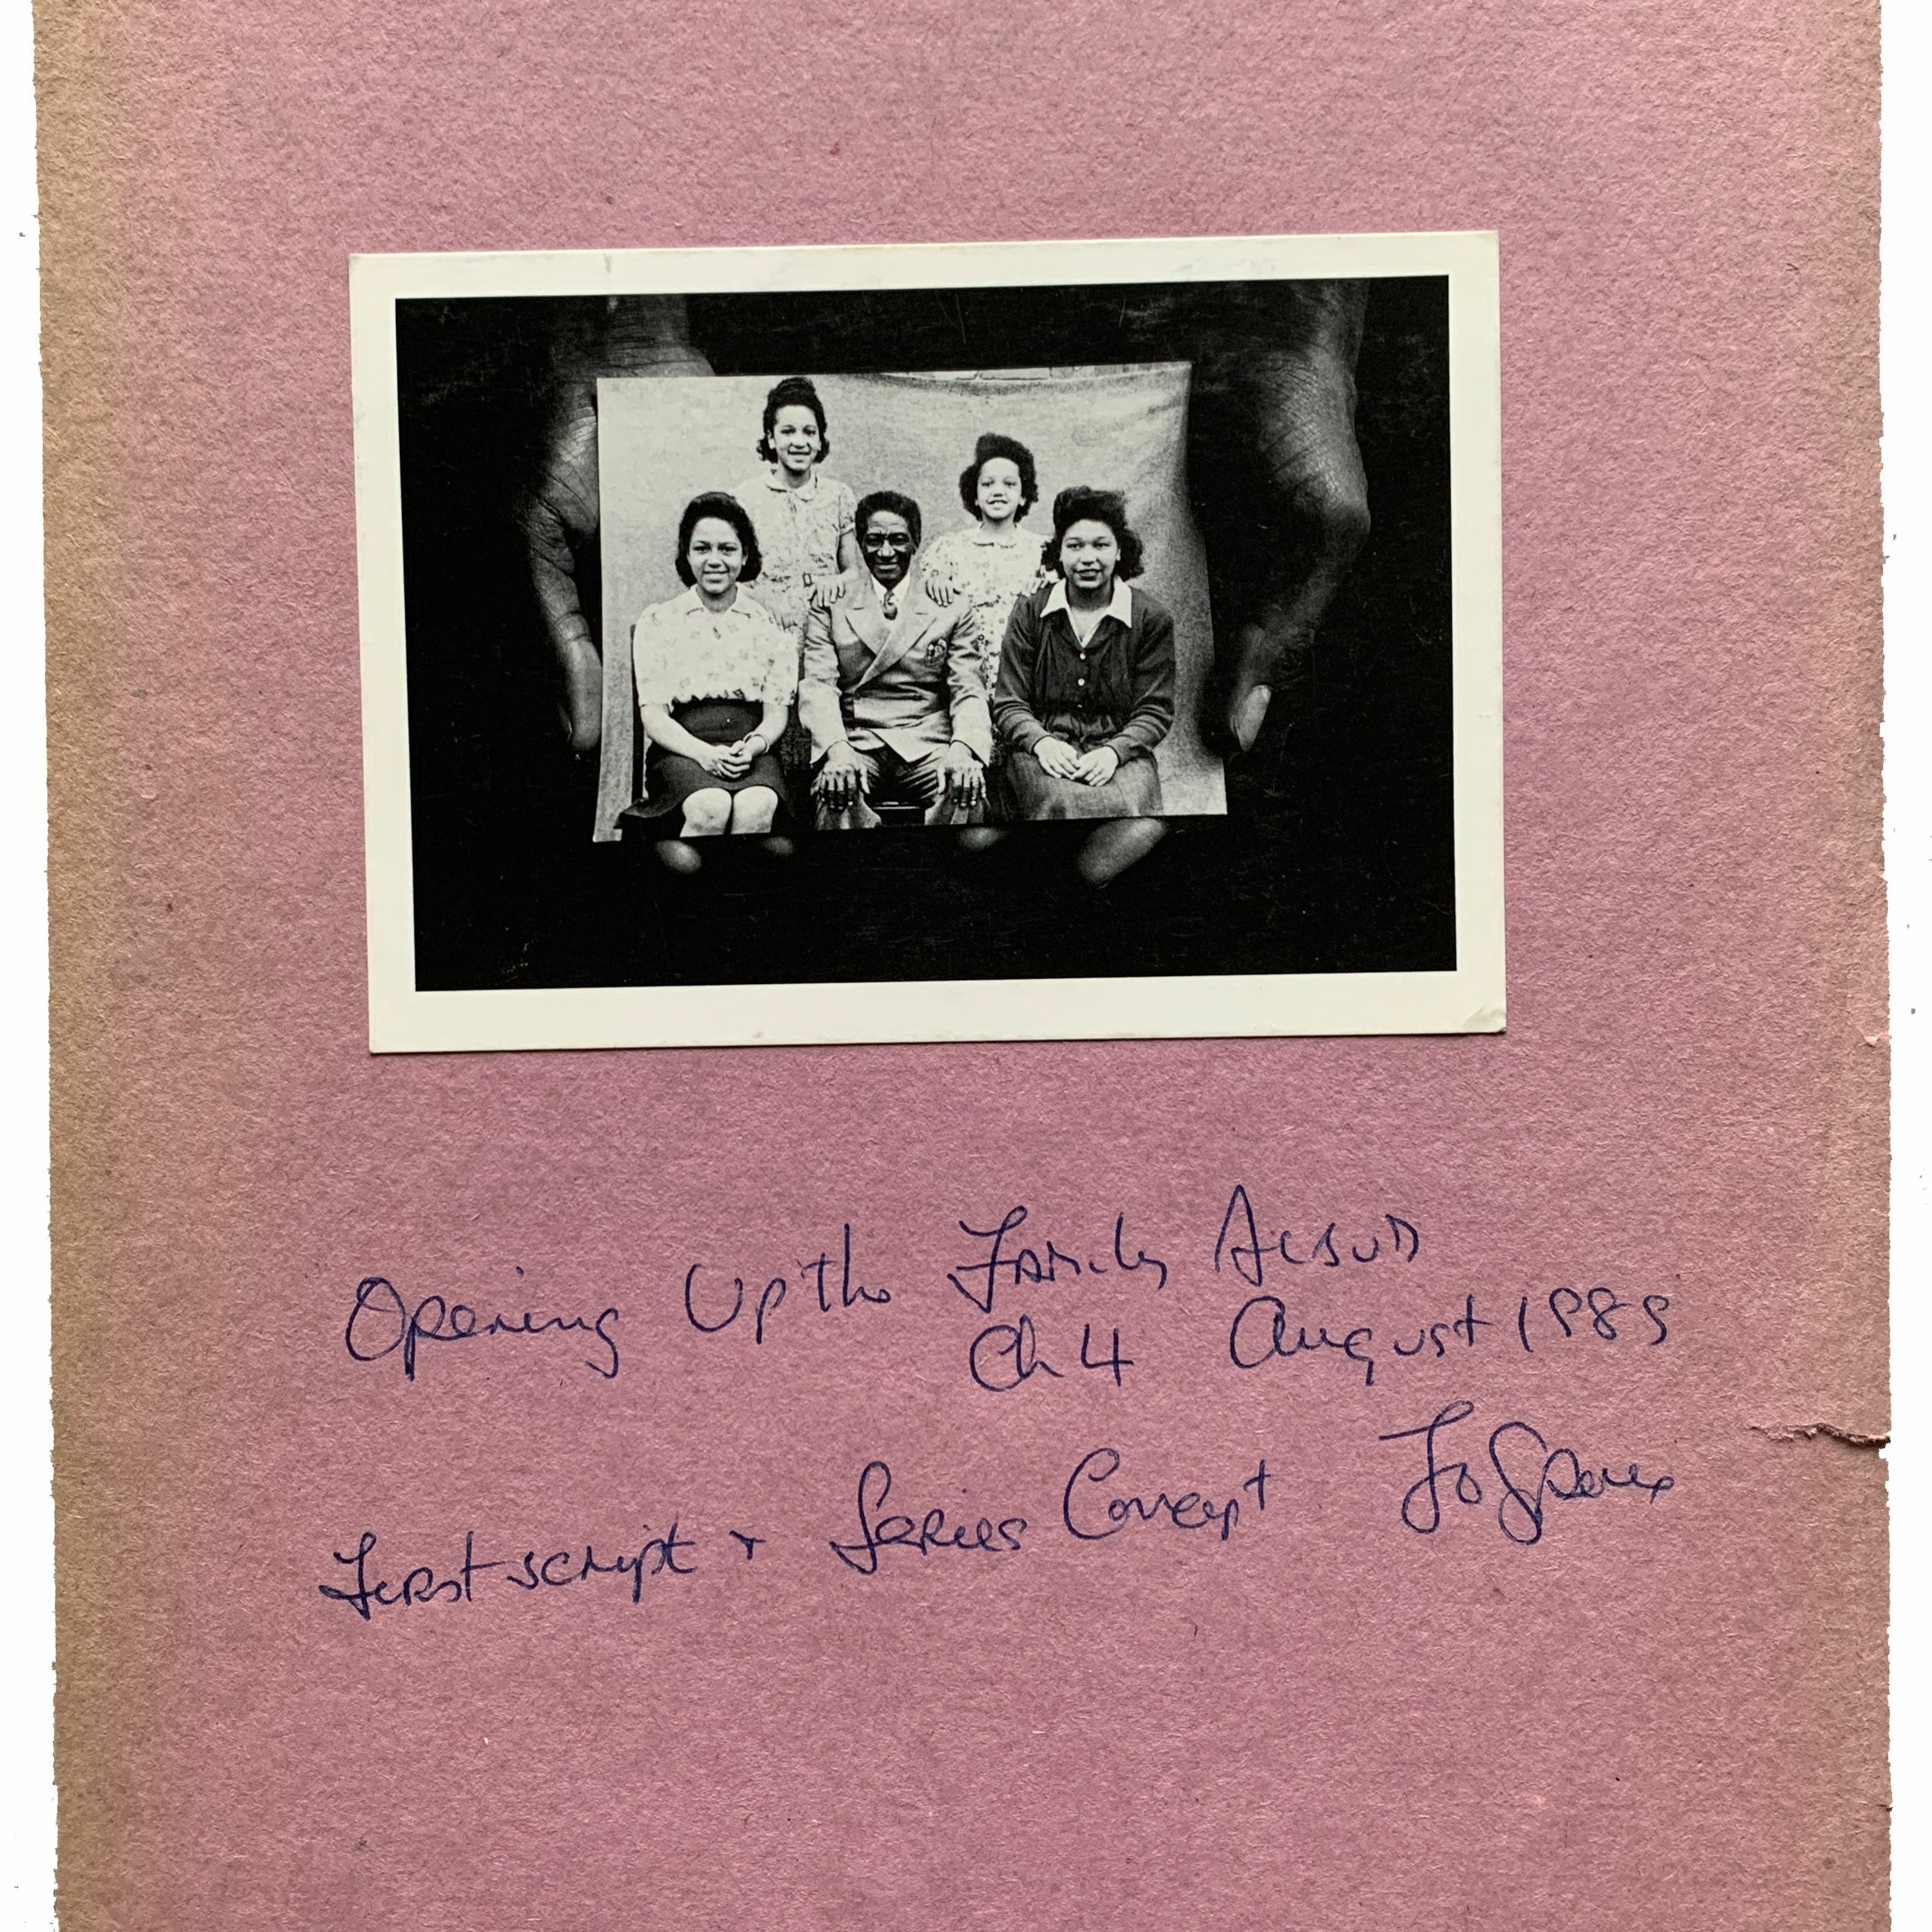 Opening Up the Family Album
Ch 4 August 1989
First script + Series Concept Jo Spence